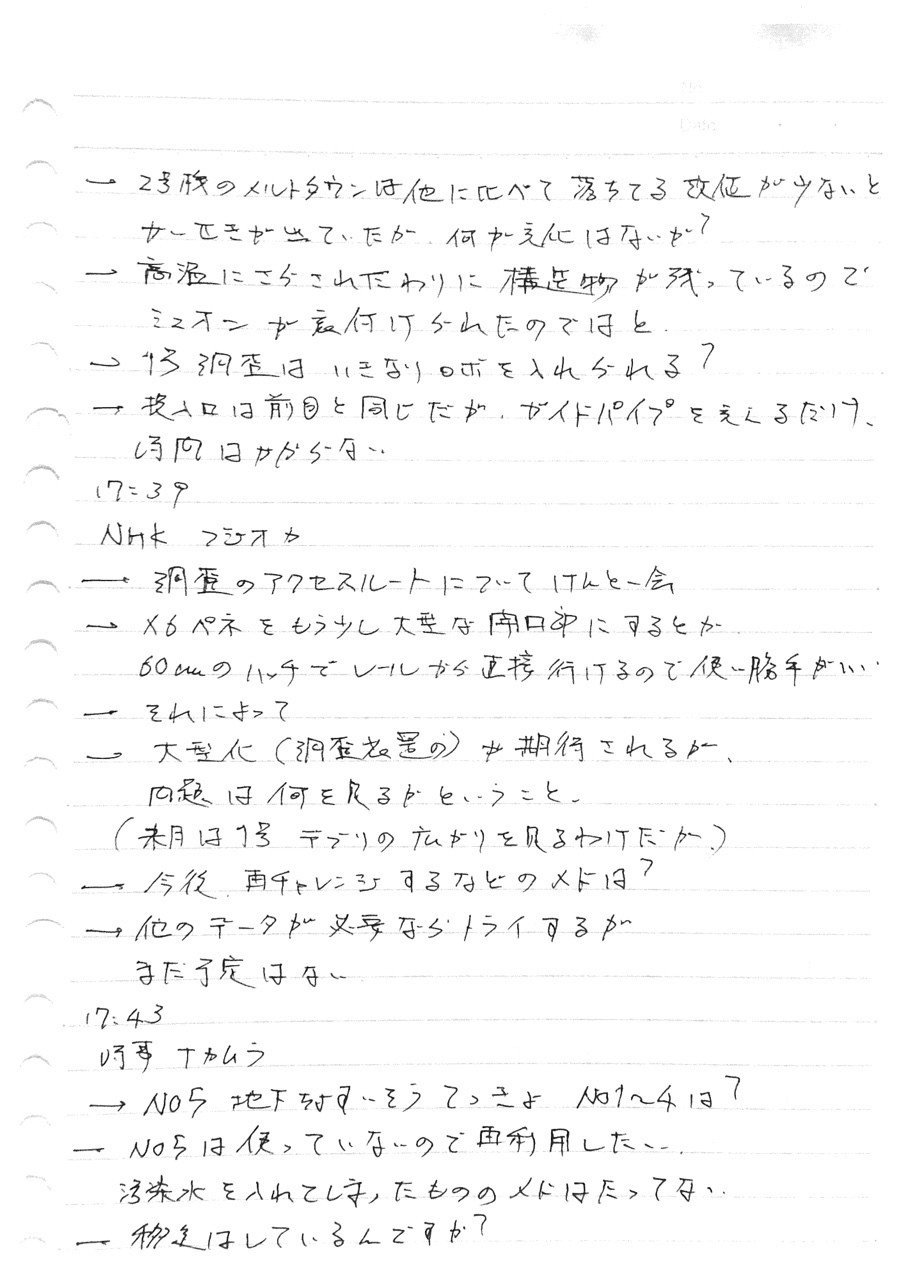 Date
→ 2号機のメルトダウンは他に比べて落ちてる数値が少ないと
が出ていたが、何か変化はないか?
→ 高温にさらされたわりに構造物が残っているので
ミュオンが裏付けられたのではと.
→ 1号調査はいきなりロボを入れられる?
→ 投入口は前回と同じだが、ガイドパイプを変えるだけ、
時間はかからない
17:39
NHK フジオカ
→ 調査のアクセスルートについてけんとー会
→ X6ペネをもう少し大型な開口部にするとか
60cmのハッチでレールから直接行けるので使い勝手がいい
→ それによって
→ 大型化(調査装置の)が期待されるが、
問題は何を見るかということ、
(来月は1号デブリの広がりを見るわけだが、)
→ 今後、再チャレンジするなどのメドは?
→ 他のデータが必要ならトライするが
まだ予定はない
17:43
時事 ナカムラ
→ NO5 地下ちょすいそうてっきょ NO1〜4は?
→ NO5は使っていないので再利用したい.
汚染水を入れてしまったもののメドはたってない
→ 移送はしているんですか?